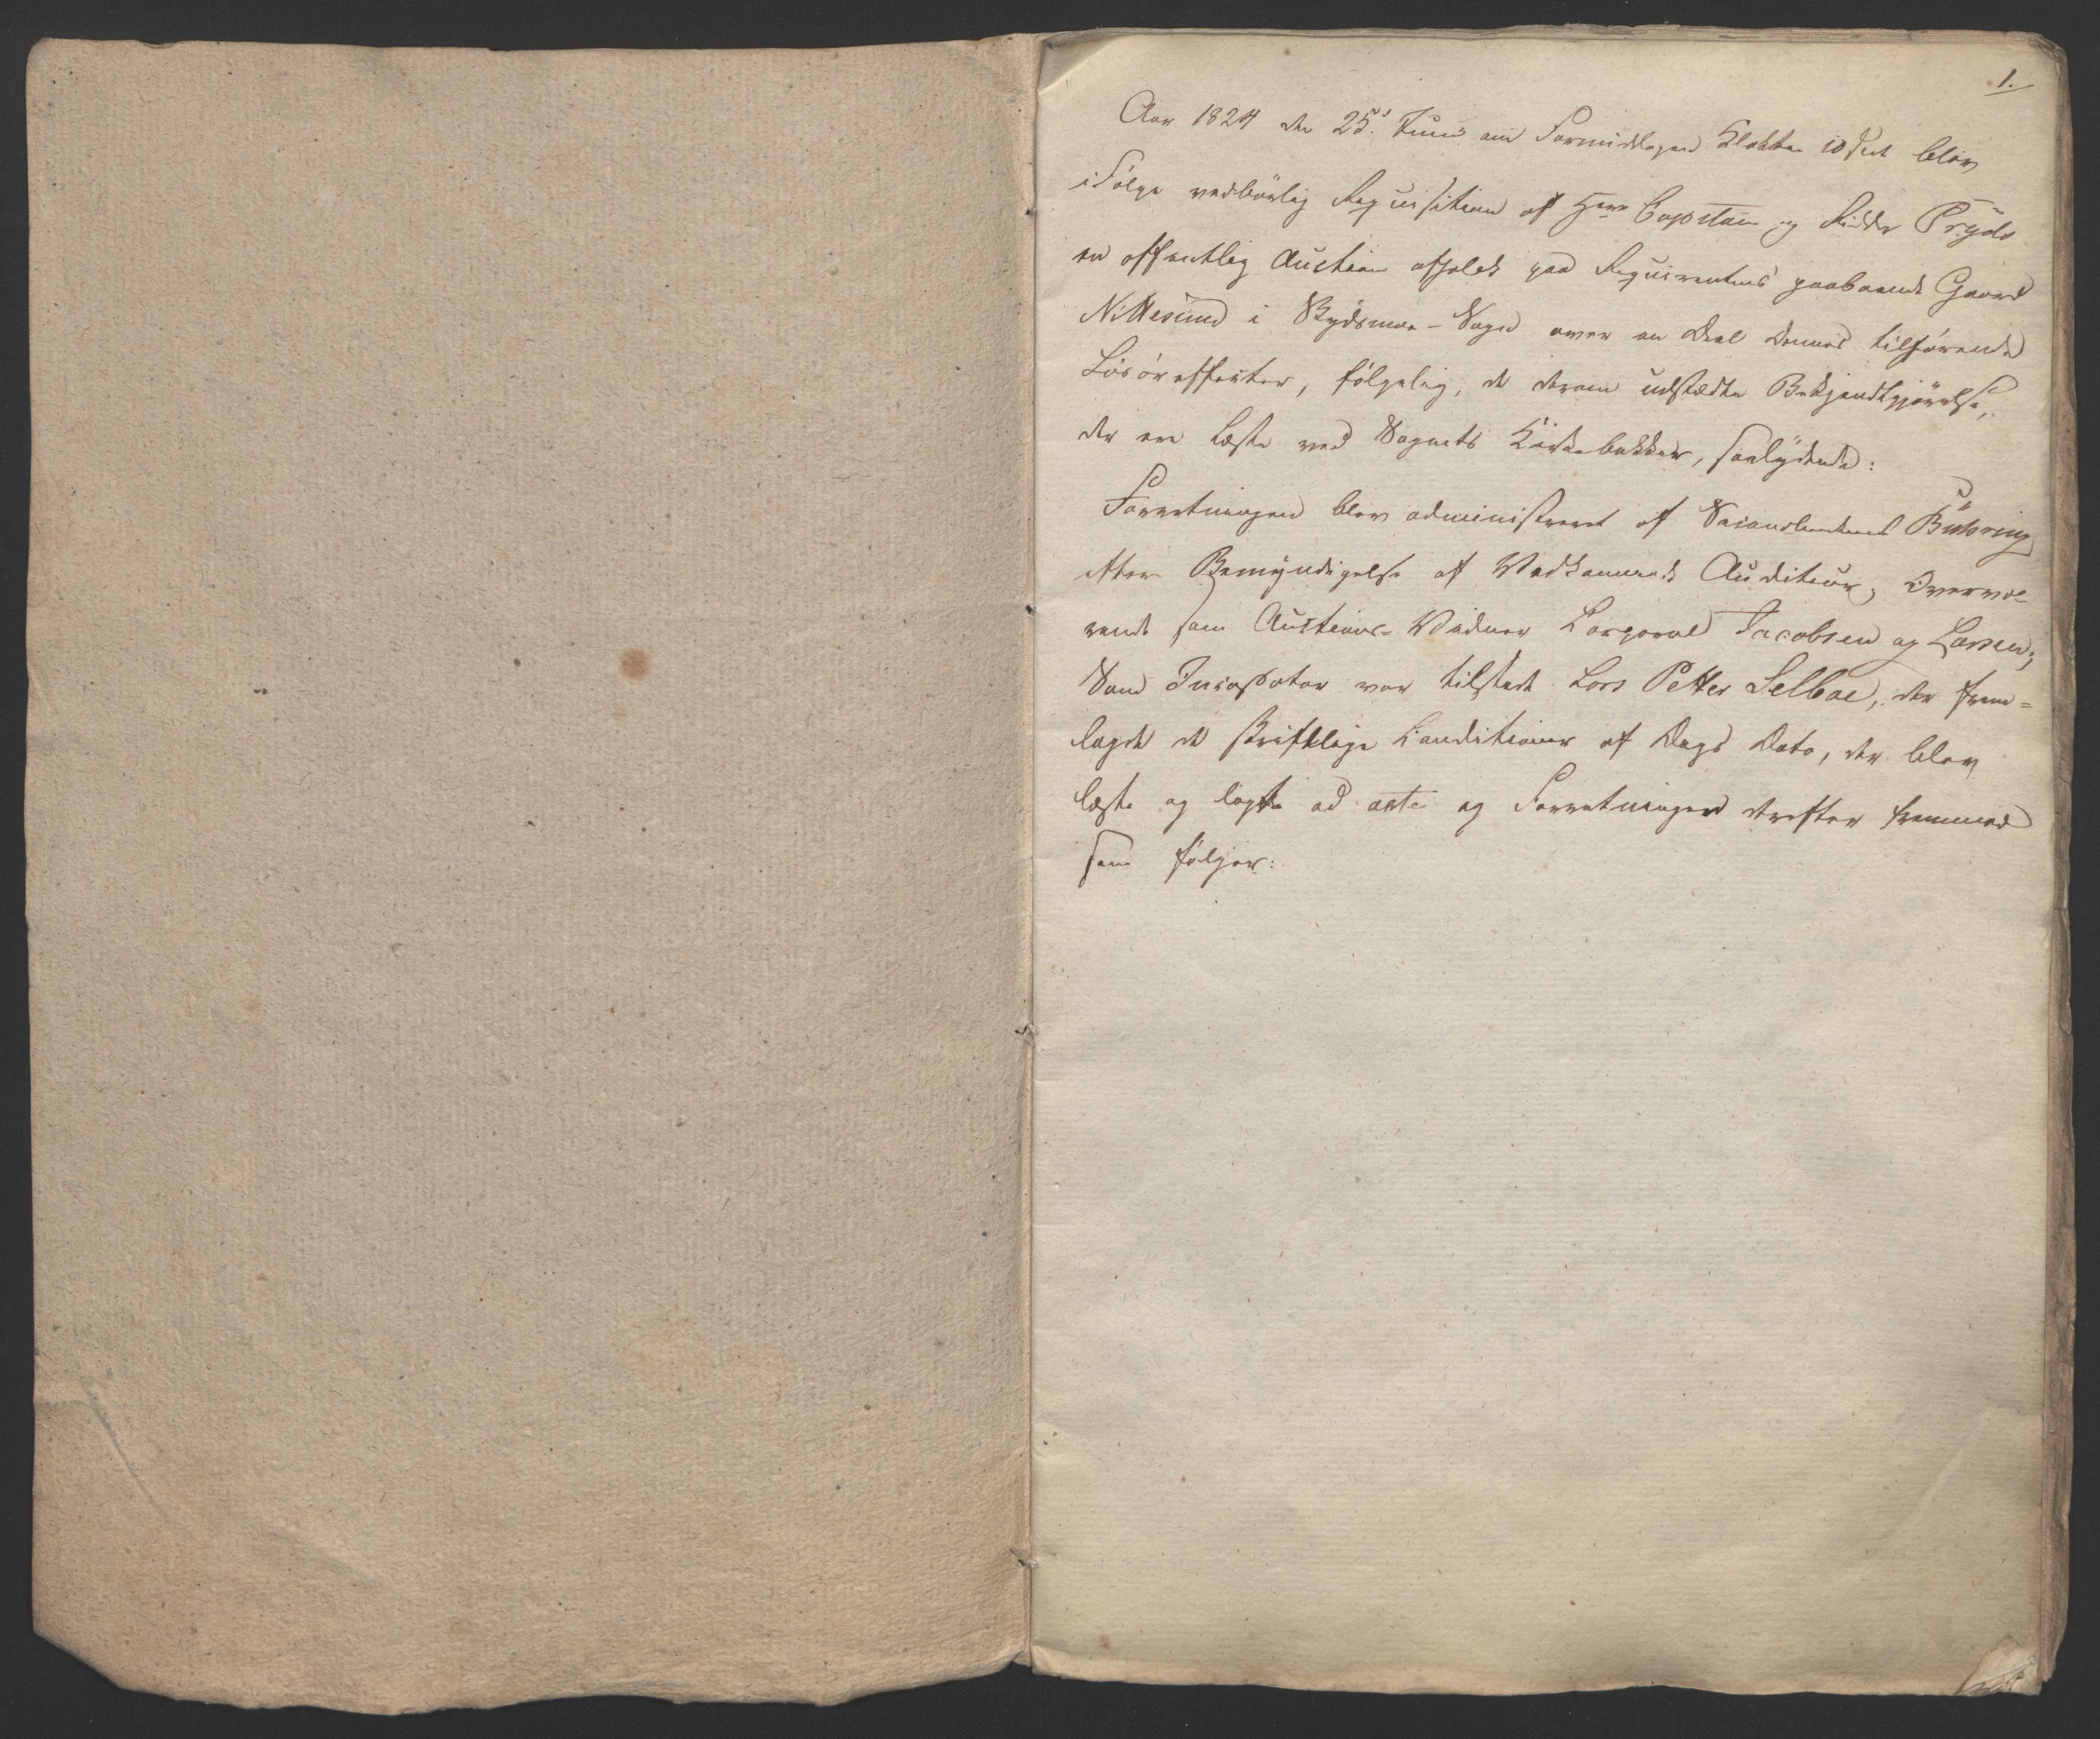 1.
Aar 1824 den 25de Juni om Formiddagen Klokken 10 Slet blev
ifølge vedbørlig Requisition af Herr Capitain og Ridder Prÿdz
en offentlig Auction afholdt paa Requirentens paaboende Gaard
Nittesund i Kydsmoe-Sogn over en Deel dennes tilhørende
Løsøreffecter, følgelig, de derom udstædte Bekjendtgjørelse,
der ere læste ved Sognets Kirkebakker, saalydende:
Forretningen blev administreret af Secondlieutenant Bühring
efter Bemyndigelse af Vedkommende Auditeur, Overvæ-
rende som Auctions-Vidner Corporal Jacobsen og Larsen,
Som Incassator var tilstede Lars Petter Selboe, der frem-
lagde de skriftlige Conditioner af Dags Dato, der blev
læste og lagte ad acta og Forretningen derefter fremmed
som følger: